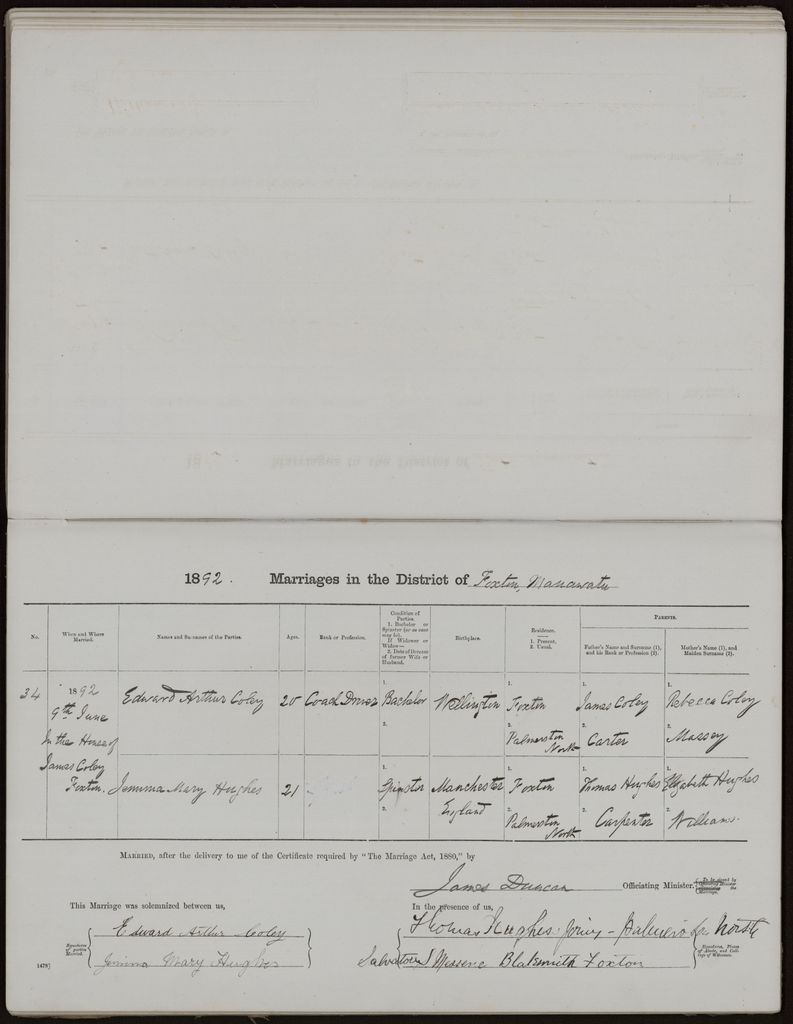 1892. Marriages in the District of Foxton, Manawatu
No. When and Where Married. Names and Surnames of the Parties. Ages. Rank or Profession. Condition of Parties. 1. Bachelor or Spinster (or as case may be). If Widower or Widow— 2. Date of Decease of former Wife or Husband. Birthplace. Residence. 1. Present. 2. Usual. PARENTS.
Father's Name and Surname (1), and his Rank or Profession (2). Mother's Name (1), and Maiden Surname (2).
34 1892 Edward Arthur Coley 20 Coach Driver 1. Bachelor Wellington 1. Foxton 1. James Coley 1. Rebecca Coley
9th June 2. 2. Palmerston North 2. Carter 2. Massey
In the House of
James Coley
Foxton. Jemima Mary Hughes 21 1. Spinster Manchester 1. Foxton 1. Thomas Hughes 1. Elizabeth Hughes
2. England 2. Palmerston North 2. Carpenter 2. Williams.
MARRIED, after the delivery to me of the Certificate required by "The Marriage Act, 1880," by
James Duncan Officiating Minister. [To be signed by Officiating Minister the Marriage.]
This Marriage was solemnized between us, In the presence of us,
Signatures of parties Married. Edward Arthur Coley Thomas Hughes North
Jemima Mary Hughes Salvatore Messene Blaksmith Foxton
Signatures, Places of Abode, and Callings of Witnesses.
1478]